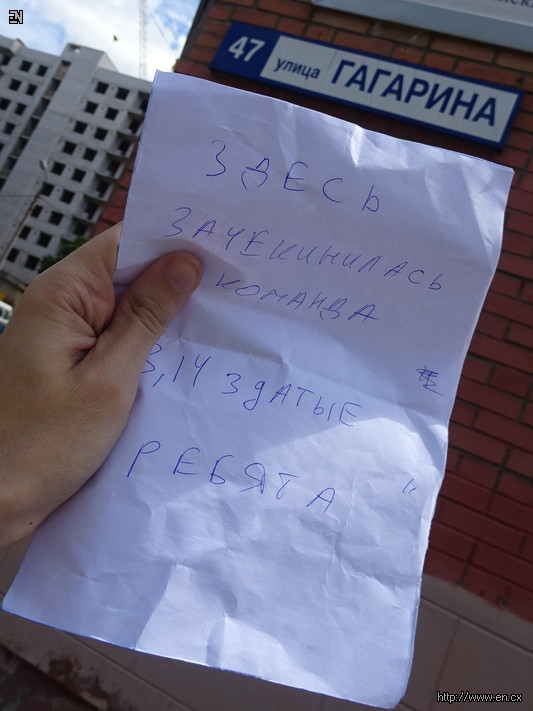 EN
47 улица ГАГАРИНА
ЗДЕСЬ
ЗАЧЕКИНИЛАСЬ
КОМАНДА
3,14 здАТЫЕ
РЕБЯТА "
http://www.en.cx